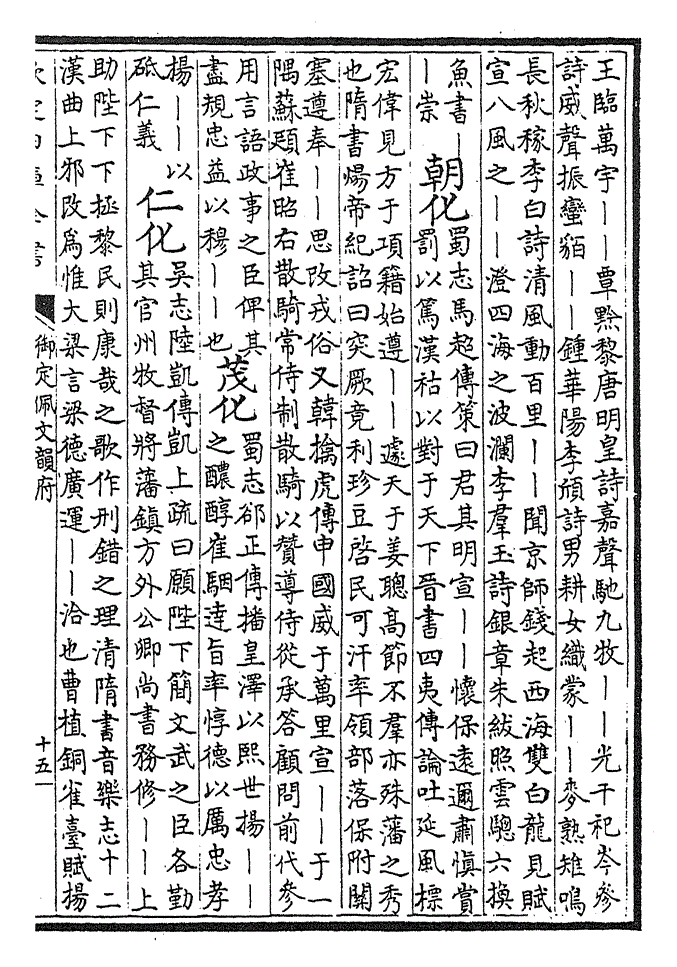 王臨萬宇——覃黔黎唐明皇詩嘉聲馳九牧——光干祀岑參
詩威聲振蠻貊——鍾華陽李頎詩男耕女織蒙——麥熟雉鳴
長秋稼李白詩清風動百里——聞京師錢起西海雙白龍見賦
宣八風之——澄四海之波瀾李羣玉詩銀章朱紱照雲驄六換
魚書—
—崇
朝化
蜀志馬超傳策曰君其明宣——懷保遠邇肅慎賞
罰以篤漢祜以對于天下晉書四夷傳論吐延風標
宏偉見方于項籍始遵——遽夭于姜聰高節不羣亦殊藩之秀
也隋書煬帝紀詔曰突厥竟利珍豆啓民可汗率領部落保附關
塞遵奉——思改戎俗又韓擒虎傳申國威于萬里宣——于一
隅蘇頲崔昭右散騎常侍制散騎以贊導侍從承答顧問前代參
用言語政事之臣俾其
盡規忠益以穆——也
茂化
蜀志郤正傳播皇澤以熙世揚——
之醲醇崔駰達旨率惇德以厲忠孝
揚——以
砥仁義
仁化
吳志陸凱傳凱上疏曰願陛下簡文武之臣各勤
其官州牧督將藩鎮方外公卿尚書務修——上
助陛下下拯黎民則康哉之歌作刑錯之理清隋書音樂志十二
漢曲上邪改為惟大梁言梁德廣運——洽也曹植銅雀臺賦揚
欽定四庫全書
御定佩文韻府
十五